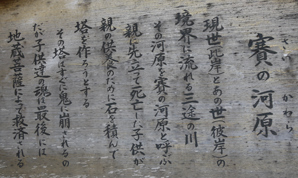 賽の河原
さい かわら
現世(此岸)とあの世(彼岸)の
境界に流れる三途の川
その河原を賽の河原と呼ぶ
親に先立って死亡した子供が
親の供養のために石を積んで
塔を作ろうとする
その塔はすぐに鬼に崩されるの
だが子供達の魂は最後には
地蔵菩薩によって救済される